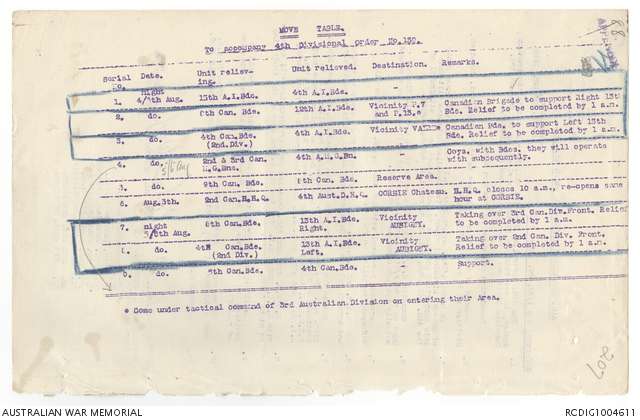 MOVE TABLE.
To accompany 4th Divisional Order No.130.
Serial No. Date. Unit relieving. Unit relieved. Destination. Remarks.
1. night 4/5th Aug. 13th A.I.Bde. 4th A.I.Bde.
2. do. 8th Can.Bde. 12th A.I.Bde. Vicinity P.7 and P.13.c Canadian Brigade to support Right 13th Bde. Relief to be completed by 1 a.m.
3. do. 4th Can.Bde. (2nd.Div.) 4th A.I.Bde. Vicinity Canadian Bde. to support Left 13th Bde. Relief to be completed by 1 a.m.
4. do. 2nd & 3rd Can. M.G.Bns. 4th A.M.G.Bn. - Coys. with Bdes. they will operate with subsequently.
5/6 Aug
5. do. 9th Can.Bde. 8th Can.Bde. Reserve Area.
6. Aug.8th. 2nd Can.H.Q. 4th Aust.D.H.Q. CORBIE Chateau. H.Q. closes 10 a.m., re-opens same hour at CORBIE.
7. night 5/6th Aug. 8th Can.Bde. 13th A.I.Bde. Right. Vicinity AUBIGNY. Taking over 3rd Can.Div.Front. Relief to be completed by 1 a.m.
8. do. 4th Can.Bde. (2nd Div.) 13th A.I.Bde. Left. Vicinity AUBIGNY. Taking over 2nd Can. Div. Front. Relief to be completed by 1 a.m.
9. do. 5th Can.Bde. 4th Can.Bde. - Support.
* Come under tactical command of 3rd Australian Division on entering their Area.
207
AUSTRALIAN WAR MEMORIAL
RCDIG1004611